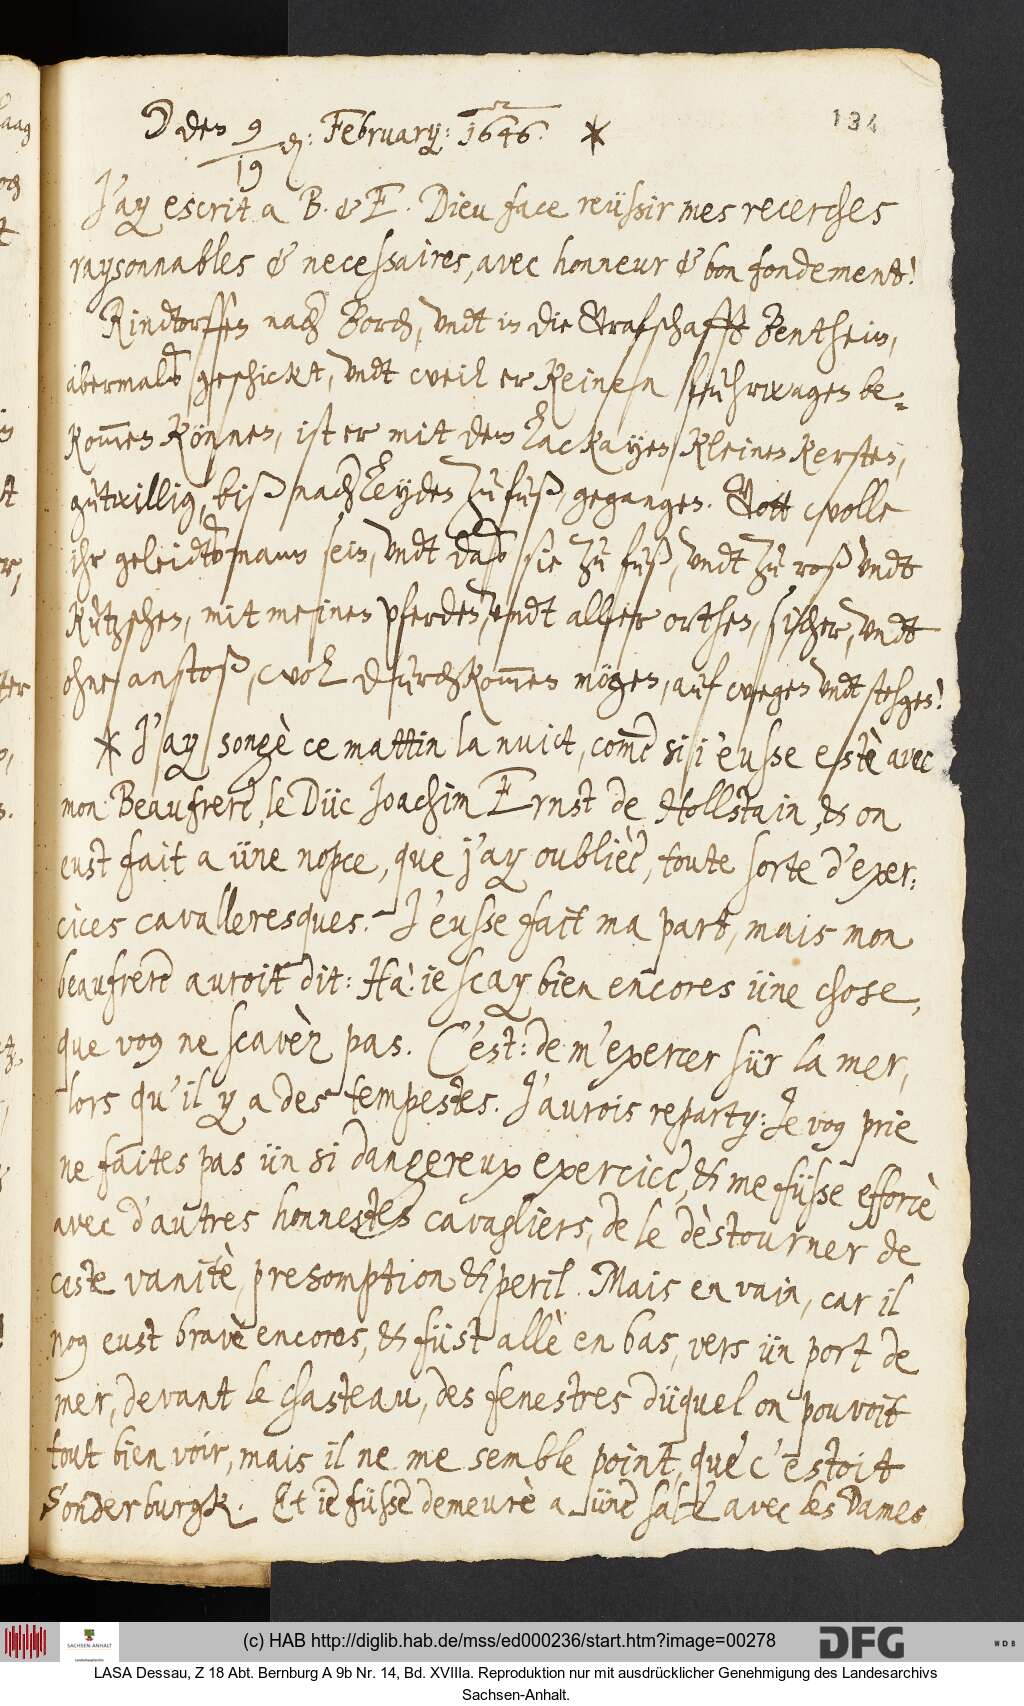 134
☽ den 9/19 d: February: 1646. *
J'ay escrit a B. & E. Dieu face reüssir mes recerches
raysonnables & necessaires, avec honneur & bon fondement!
Rindtorffen nach Borch, undt in die Grafschafft Benthein,
abermalß geschickt, undt weil er keinen fuhrwagen be-
kom̅en können, ist er mit dem Lackayen kleinen Kersten,
gutwillig, biß nach Leyden zu fuß, gegangen. Gott wolle
ihr geleidtßmann sein, undt daß sie zu fuß, undt zu roß undt
Kutzschen, mit meinen pferden, undt aller orthen, sicher, undt
ohne anstoß, wol durchkom̅en mögen, auf wegen undt stehgen!
* J'ay songè ce mattin la nuict, com̅e si j'eusse estè avec
mon Beaufrere, le Düc Joachim Ernst de Hollstain, & on
eust fait a üne nopce, que j'ay oublièe, toute sorte d'exer-
cices cavalleresques. J'eusse fait ma part, mais mon
beaufrere auroit dit: Ha! ie scay bien encores üne chose,
que vo9 ne scavèz pas. C'est: de m'exercer sür la mer,
lors qu'il y a des tempestes. J'aurois reparty: Je vo9 prie
ne faites pas ün si dangereux exercice, & me füsse efforcè
avec d'autres honnestes cavagliers, de le dèstourner de
ceste vanitè, presomption & peril. Mais en vain, car il
no9 eust bravè encores, & füst allè en bas, vers ün port de
mer, devant le chasteau, des fenestres düquel on pouvoit
tout bien voir, mais il ne me semble point, que c'estoit
Sonderburgk. Et ie füsse demeurè a üne sale avec les Dames
(c) HAB http://diglib.hab.de/mss/ed000236/start.htm?image=00278
SACHSEN-ANHALT
DFG
WDB
LASA Dessau, Z 18 Abt. Bernburg A 9b Nr. 14, Bd. XVIIIa. Reproduktion nur mit ausdrücklicher Genehmigung des Landesarchivs
Sachsen-Anhalt.